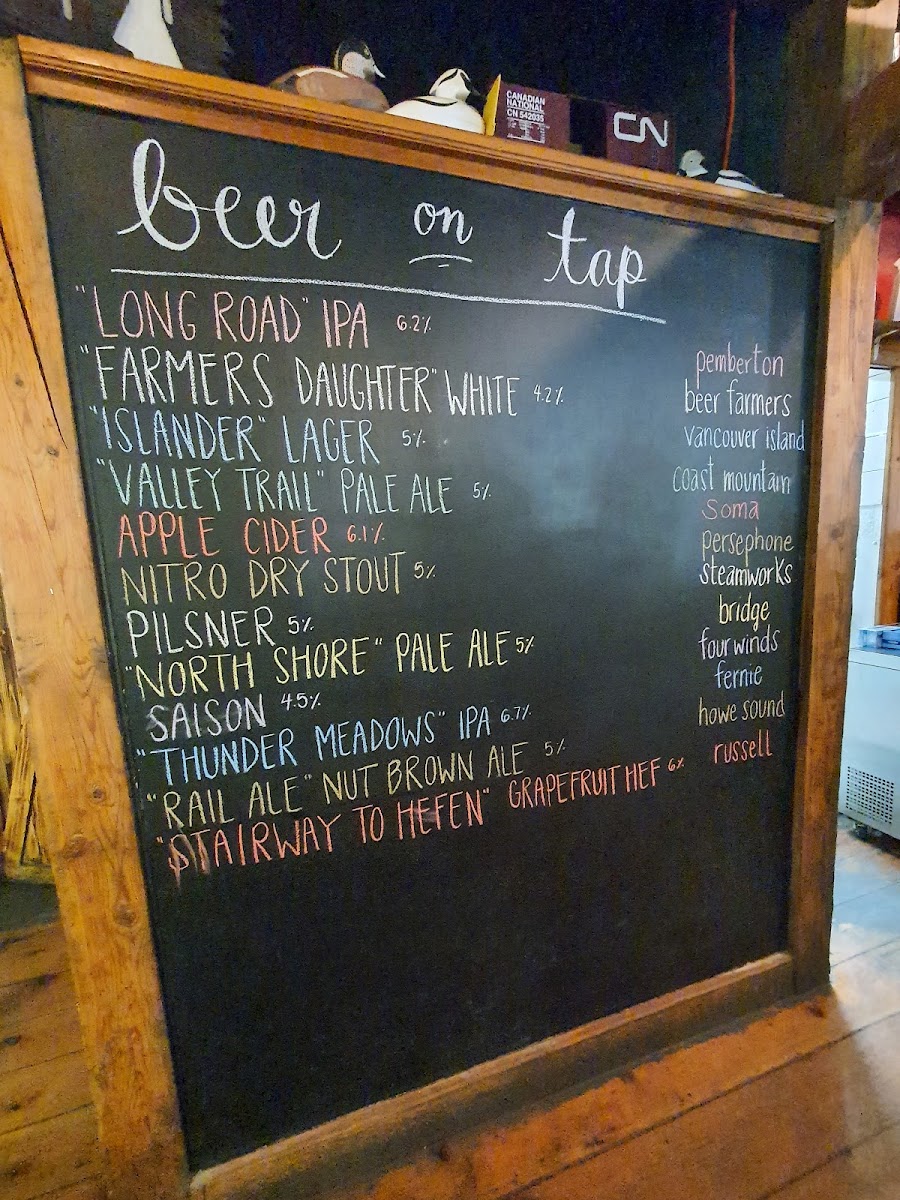 CANADIAN
NATIONAL
CN 542035
CN
beer on tap
"LONG ROAD" IPA 6.2% pemberton
"FARMERS DAUGHTER" WHITE 4.2% beer farmers
"ISLANDER" LAGER 5% vancouver island
"VALLEY TRAIL" PALE ALE 5% coast mountain
APPLE CIDER 6.1% Soma
NITRO DRY STOUT 5% persephone
PILSNER 5% steamworks
"NORTH SHORE" PALE ALE 5% bridge
SAISON 4.5% four winds
"THUNDER MEADOWS" IPA 6.7% fernie
"RAIL ALE" NUT BROWN ALE 5% howe sound
"STAIRWAY TO HEFEN" GRAPEFRUIT HEF 6% russell